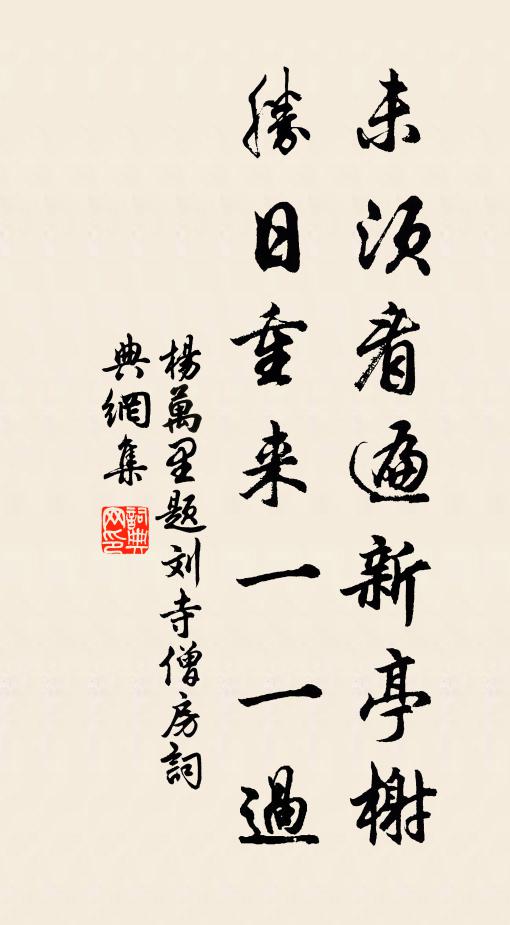 未须看遍新亭榭
勝日重来一一過
楊萬里题刘寺僧房詞
典網集
詞典
网印